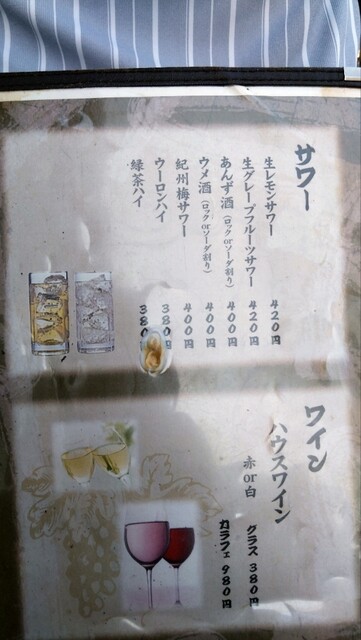 サワー
生レモンサワー 420円
生グレープフルーツサワー 420円
あんず酒（ロックorソーダ割り） 400円
ウメ酒（ロックorソーダ割り） 400円
紀州梅サワー 400円
ウーロンハイ 380円
緑茶ハイ 380
ワイン
ハウスワイン
赤or白
グラス 380円
カラフェ 980円